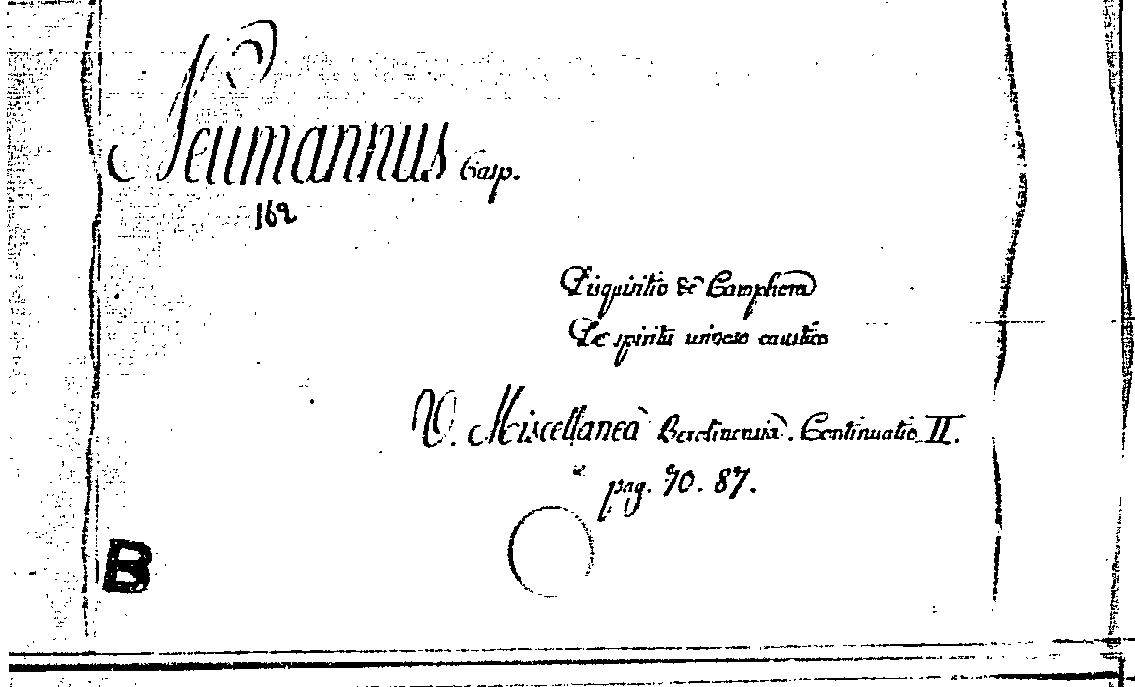 Neumannus Casp.
162
Disquisitio de Camphora
De spiritu urinoso caustico
V. Miscellanea Berolinensia. Continuatio II.
pag. 70. 87.
B